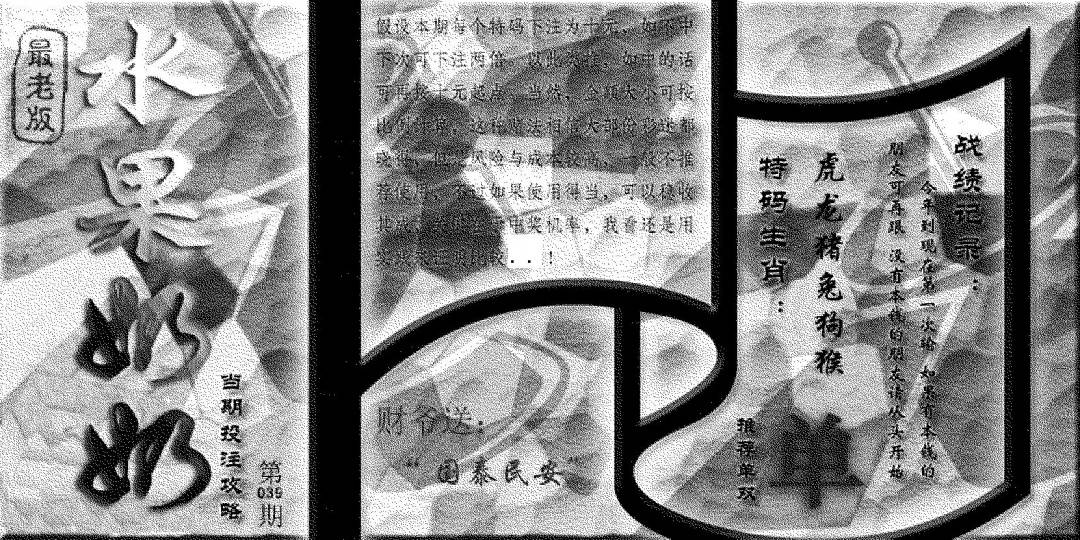 最老版
水果奶奶
当期投注攻略
第
039
期
假设本期每个特码下注为十元，如不中
下次可下注两倍，以此类推，如中的话
可再按十元起点，当然，金额大小可按
比例 这种 法相信大部份彩迷都
晓得，但 风险与成本较高，一般不推
荐使用，不过如果使用得当，可以稳收
其成 中奖机率，我看还是用
比较..！
财爷送：
“国泰民安”
战绩记录：
今年到现在第一次输 如果有本钱的
朋友可再跟 没有本钱的朋友请从头开始
虎龙猪兔狗猴
特码生肖：
单
推荐单双